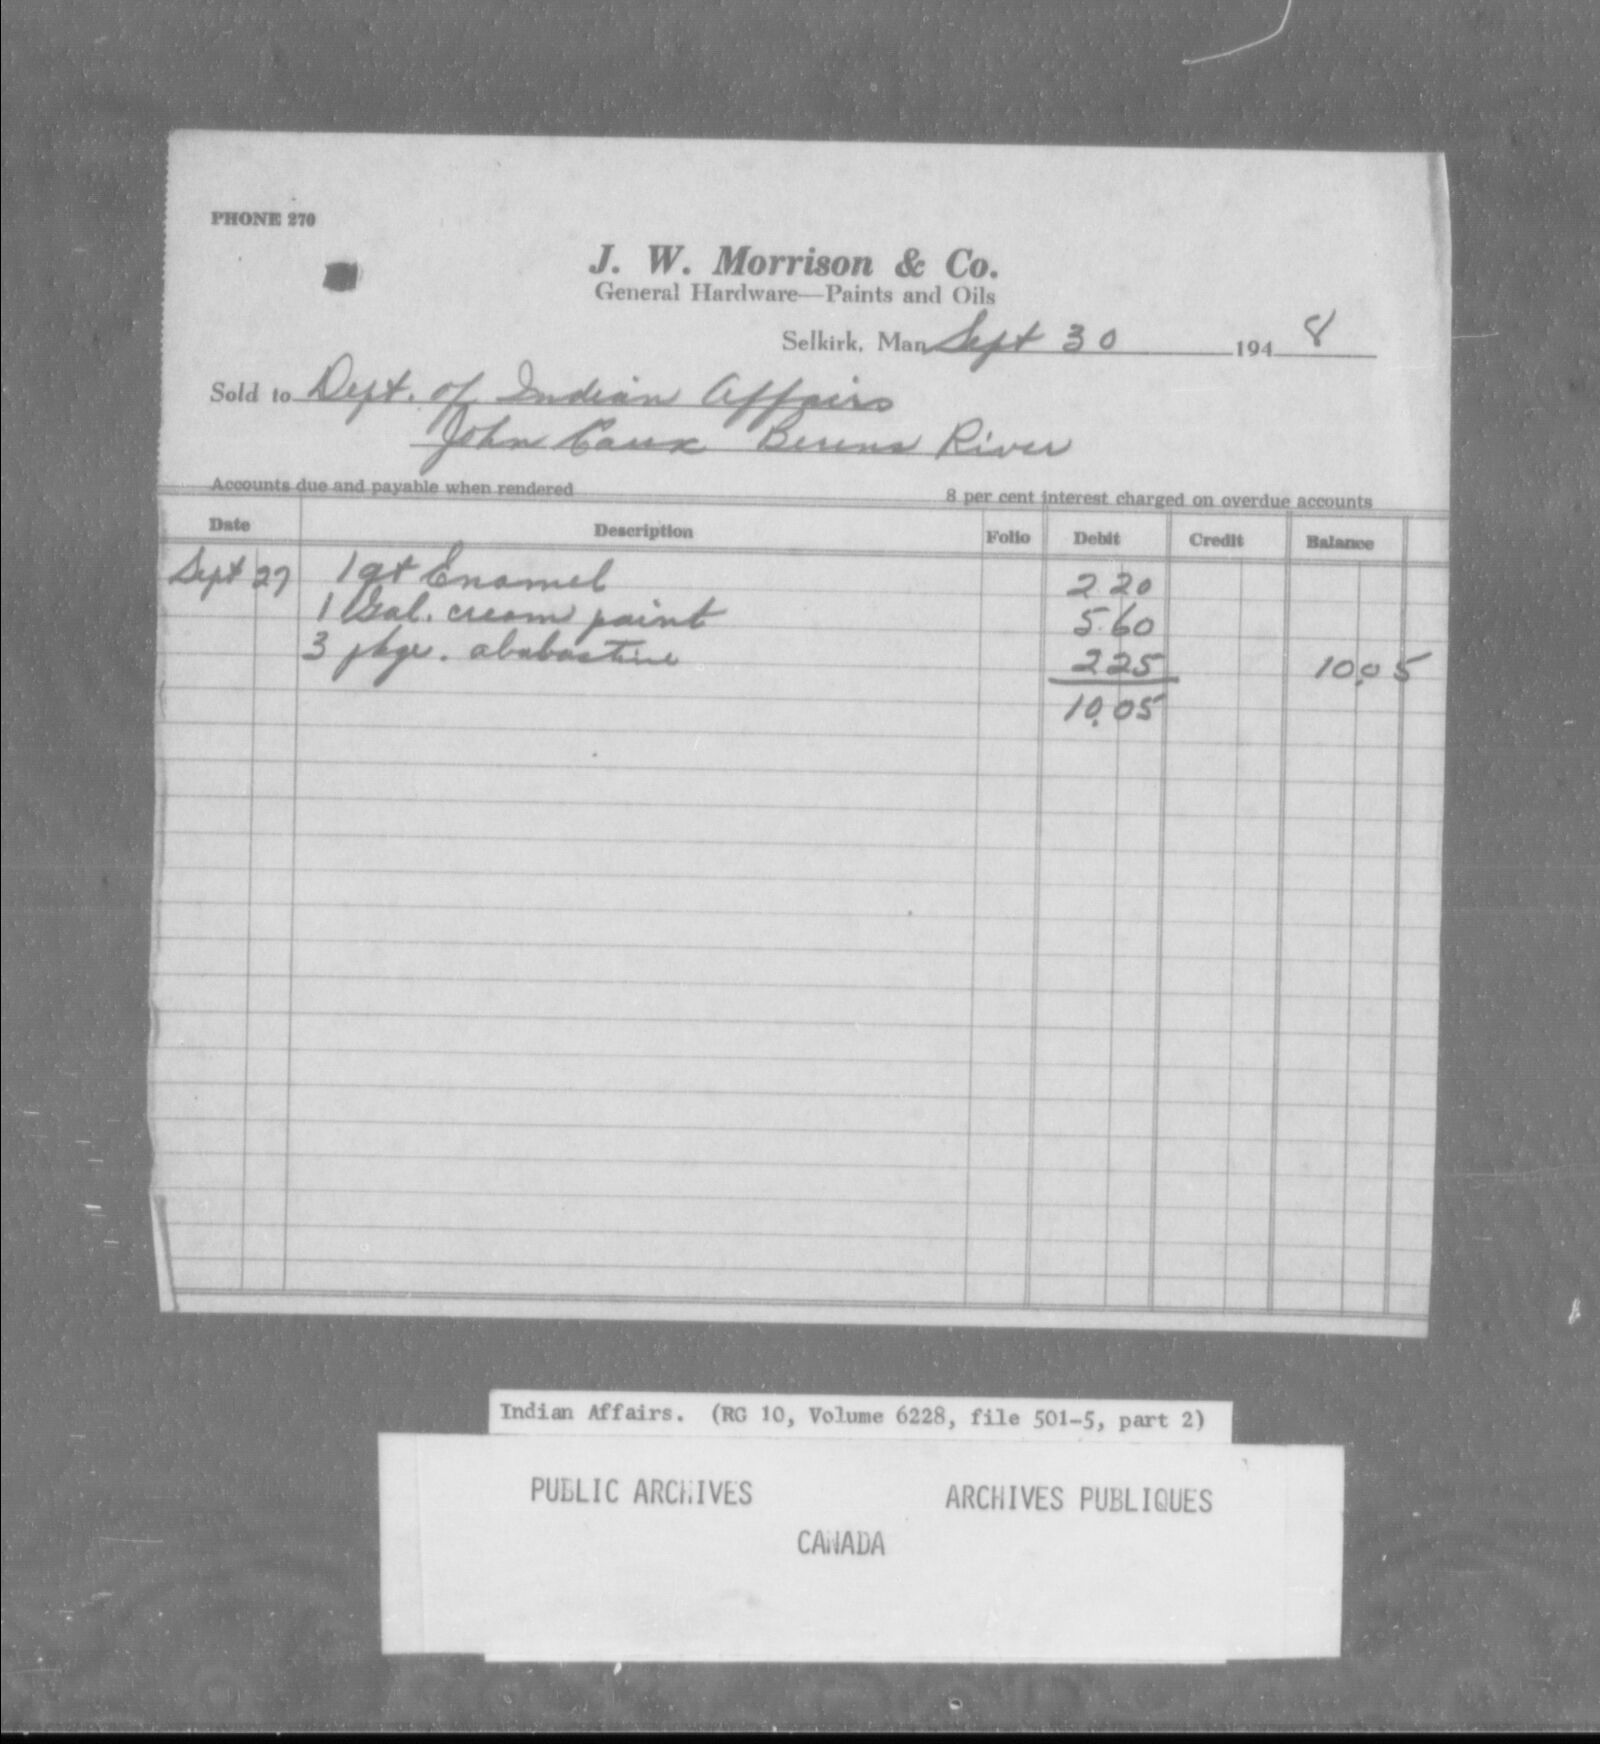 PHONE 270
J. W. Morrison & Co.
General Hardware—Paints and Oils
Selkirk, Man Sept 30 1948
Sold to Dept. of Indian Affairs
John Caux Berens River
Accounts due and payable when rendered 8 per cent interest charged on overdue accounts
Date Description Folio Debit Credit Balance
Sept 27 1 qt Enamel 2 20
1 Gal. cream paint 5.60
3 pkge. alabastine 2 25 10.05
10.05
Indian Affairs. (RG 10, Volume 6228, file 501-5, part 2)
PUBLIC ARCHIVES ARCHIVES PUBLIQUES
CANADA